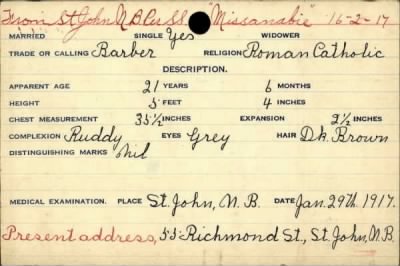 From St. John N.B. Per S.S. "Missanabie" 16-2-17
MARRIED SINGLE Yes WIDOWER
TRADE OR CALLING Barber RELIGION Roman Catholic
DESCRIPTION.
APPARENT AGE 21 YEARS 6 MONTHS
HEIGHT 5 FEET 4 INCHES
CHEST MEASUREMENT 35½ INCHES EXPANSION 2½ INCHES
COMPLEXION Ruddy EYES Grey HAIR Dk. Brown
DISTINGUISHING MARKS Nil
MEDICAL EXAMINATION. PLACE St. John, N.B. DATE Jan. 29th. 1917.
Present address, 55 Richmond St., St. John, N.B.